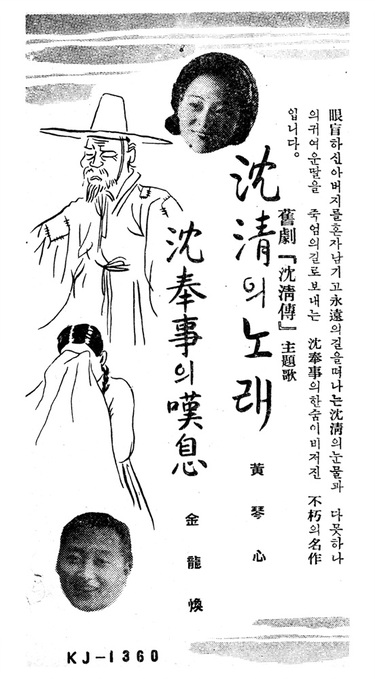 眼盲하신아버지를혼자남기고永遠의길을떠나는沈淸의눈물과 다못하나
의귀여운딸을 죽엄의길로보내는 沈奉事의한숨이비저진 不朽의名作
입니다。
舊劇『沈淸傳』主題歌
沈清의노래
黃琴心
沈奉事의嘆息
金龍煥
KJ-1360